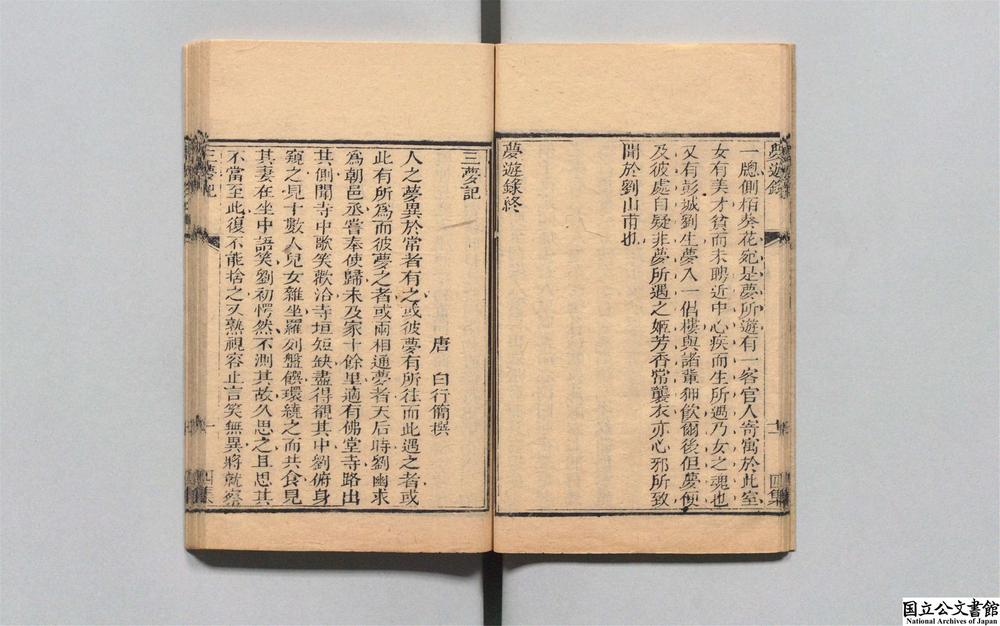 夢遊錄
一牕側栢葵花宛是夢所遊有一客官人寄寓於此室
女有美才貧而未聘近中心疾而生所遇乃女之魂也
又有彭城劉生夢入一倡樓與諸輩狎飲爾後但夢便
及彼處自疑非夢所遇之姬芳香常襲衣亦心邪所致
聞於劉山甫也
夢遊錄終
十一
四集
三夢記
唐 白行簡撰
人之夢異於常者有之或彼夢有所往而此遇之者或
此有所為而彼夢之者或兩相通夢者天后時劉幽求
為朝邑丞嘗奉使歸未及家十餘里適有佛堂寺路出
其側聞寺中歌笑歡洽寺垣短缺盡得覩其中劉俯身
窺之見十數人兒女雜坐羅列盤饌環繞之而共食見
其妻在坐中語笑劉初愕然不測其故久思之且思其
不當至此復不能捨之又熟視容止言笑無異將就察
三夢記
一
四集
国立公文書館
National Archives of Japan